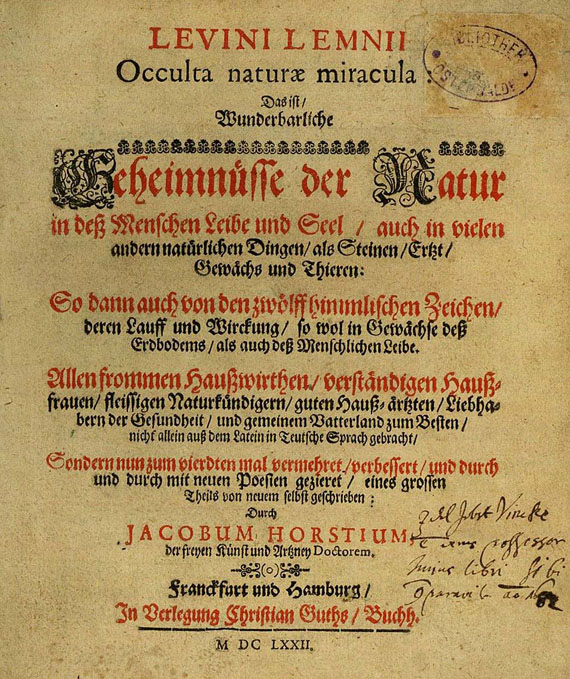 LEVINI LEMNII
Occulta naturæ miracula:
Das ist/
Wunderbarliche
Geheimnüsse der Natur
in deß Menschen Leibe und Seel / auch in vielen
andern natürlichen Dingen/ als Steinen/ Ertzt/
Gewächs und Thieren:
So dann auch von den zwölff himmlischen Zeichen/
deren Lauff und Wirckung/ so wol in Gewächse deß
Erdbodems/ als auch deß Menschlichen Leibe.
Allen frommen Haußwirthen/ verständigen Hauß-
frauen/ fleissigen Naturkündigern/ guten Hauß-ärtzten/ Liebha-
bern der Gesundheit/ und gemeinem Vatterland zum Besten/
nicht allein auß dem Latein in Teutsche Sprach gebracht/
Sondern nun zum vierdten mal vermehret/ verbessert/ und durch
und durch mit neuen Poesien gezieret/ eines grossen
Theils von neuem selbst geschrieben:
Durch
JACOBUM HORSTIUM
der freyen Künst und Artzney Doctorem.
Franckfurt und Hamburg/
In Verlegung Christian Guths/ Buchh.
M DC LXXII.
BIBLIOTHEK
professor
libri sibi